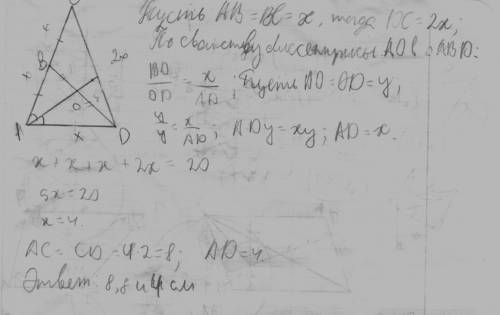 Пусть AB = BC = x, тогда DC = 2x;
По свойству биссектрисы AOB в ABD:
BO/OD = x/AD; Пусть BO = OD = y,
y/y = x/AD; ADy = xy; AD = x.
x
x
B
2x
O
A
x
D
x + x + x + 2x = 20
5x = 20
x = 4.
AC = CD = 4·2 = 8; AD = 4.
Ответ 8, 8 и 4 см